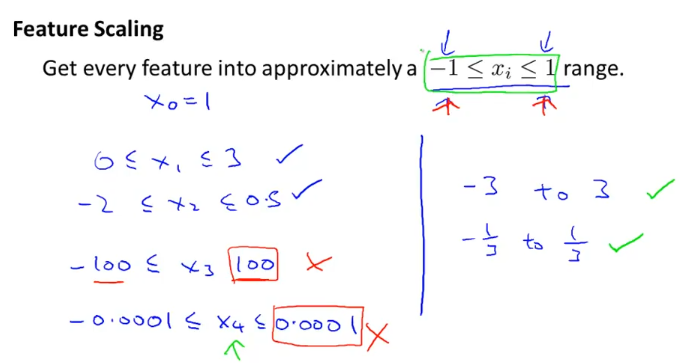 Feature Scaling
Get every feature into approximately a -1 ≤ xᵢ ≤ 1 range.
x₀ = 1
0 ≤ x₁ ≤ 3 ✓
-2 ≤ x₂ ≤ 0.5 ✓
-100 ≤ x₃ 100 ✗
-0.0001 ≤ x₄ ≤ 0.0001 ✗
-3 to 3 ✓
-1/3 to 1/3 ✓